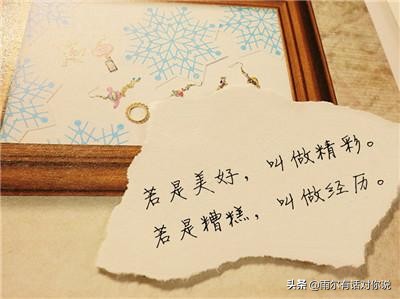 若是美好，叫做精彩。
若是糟糕，叫做经历。
头条 @雨尔有话对你说